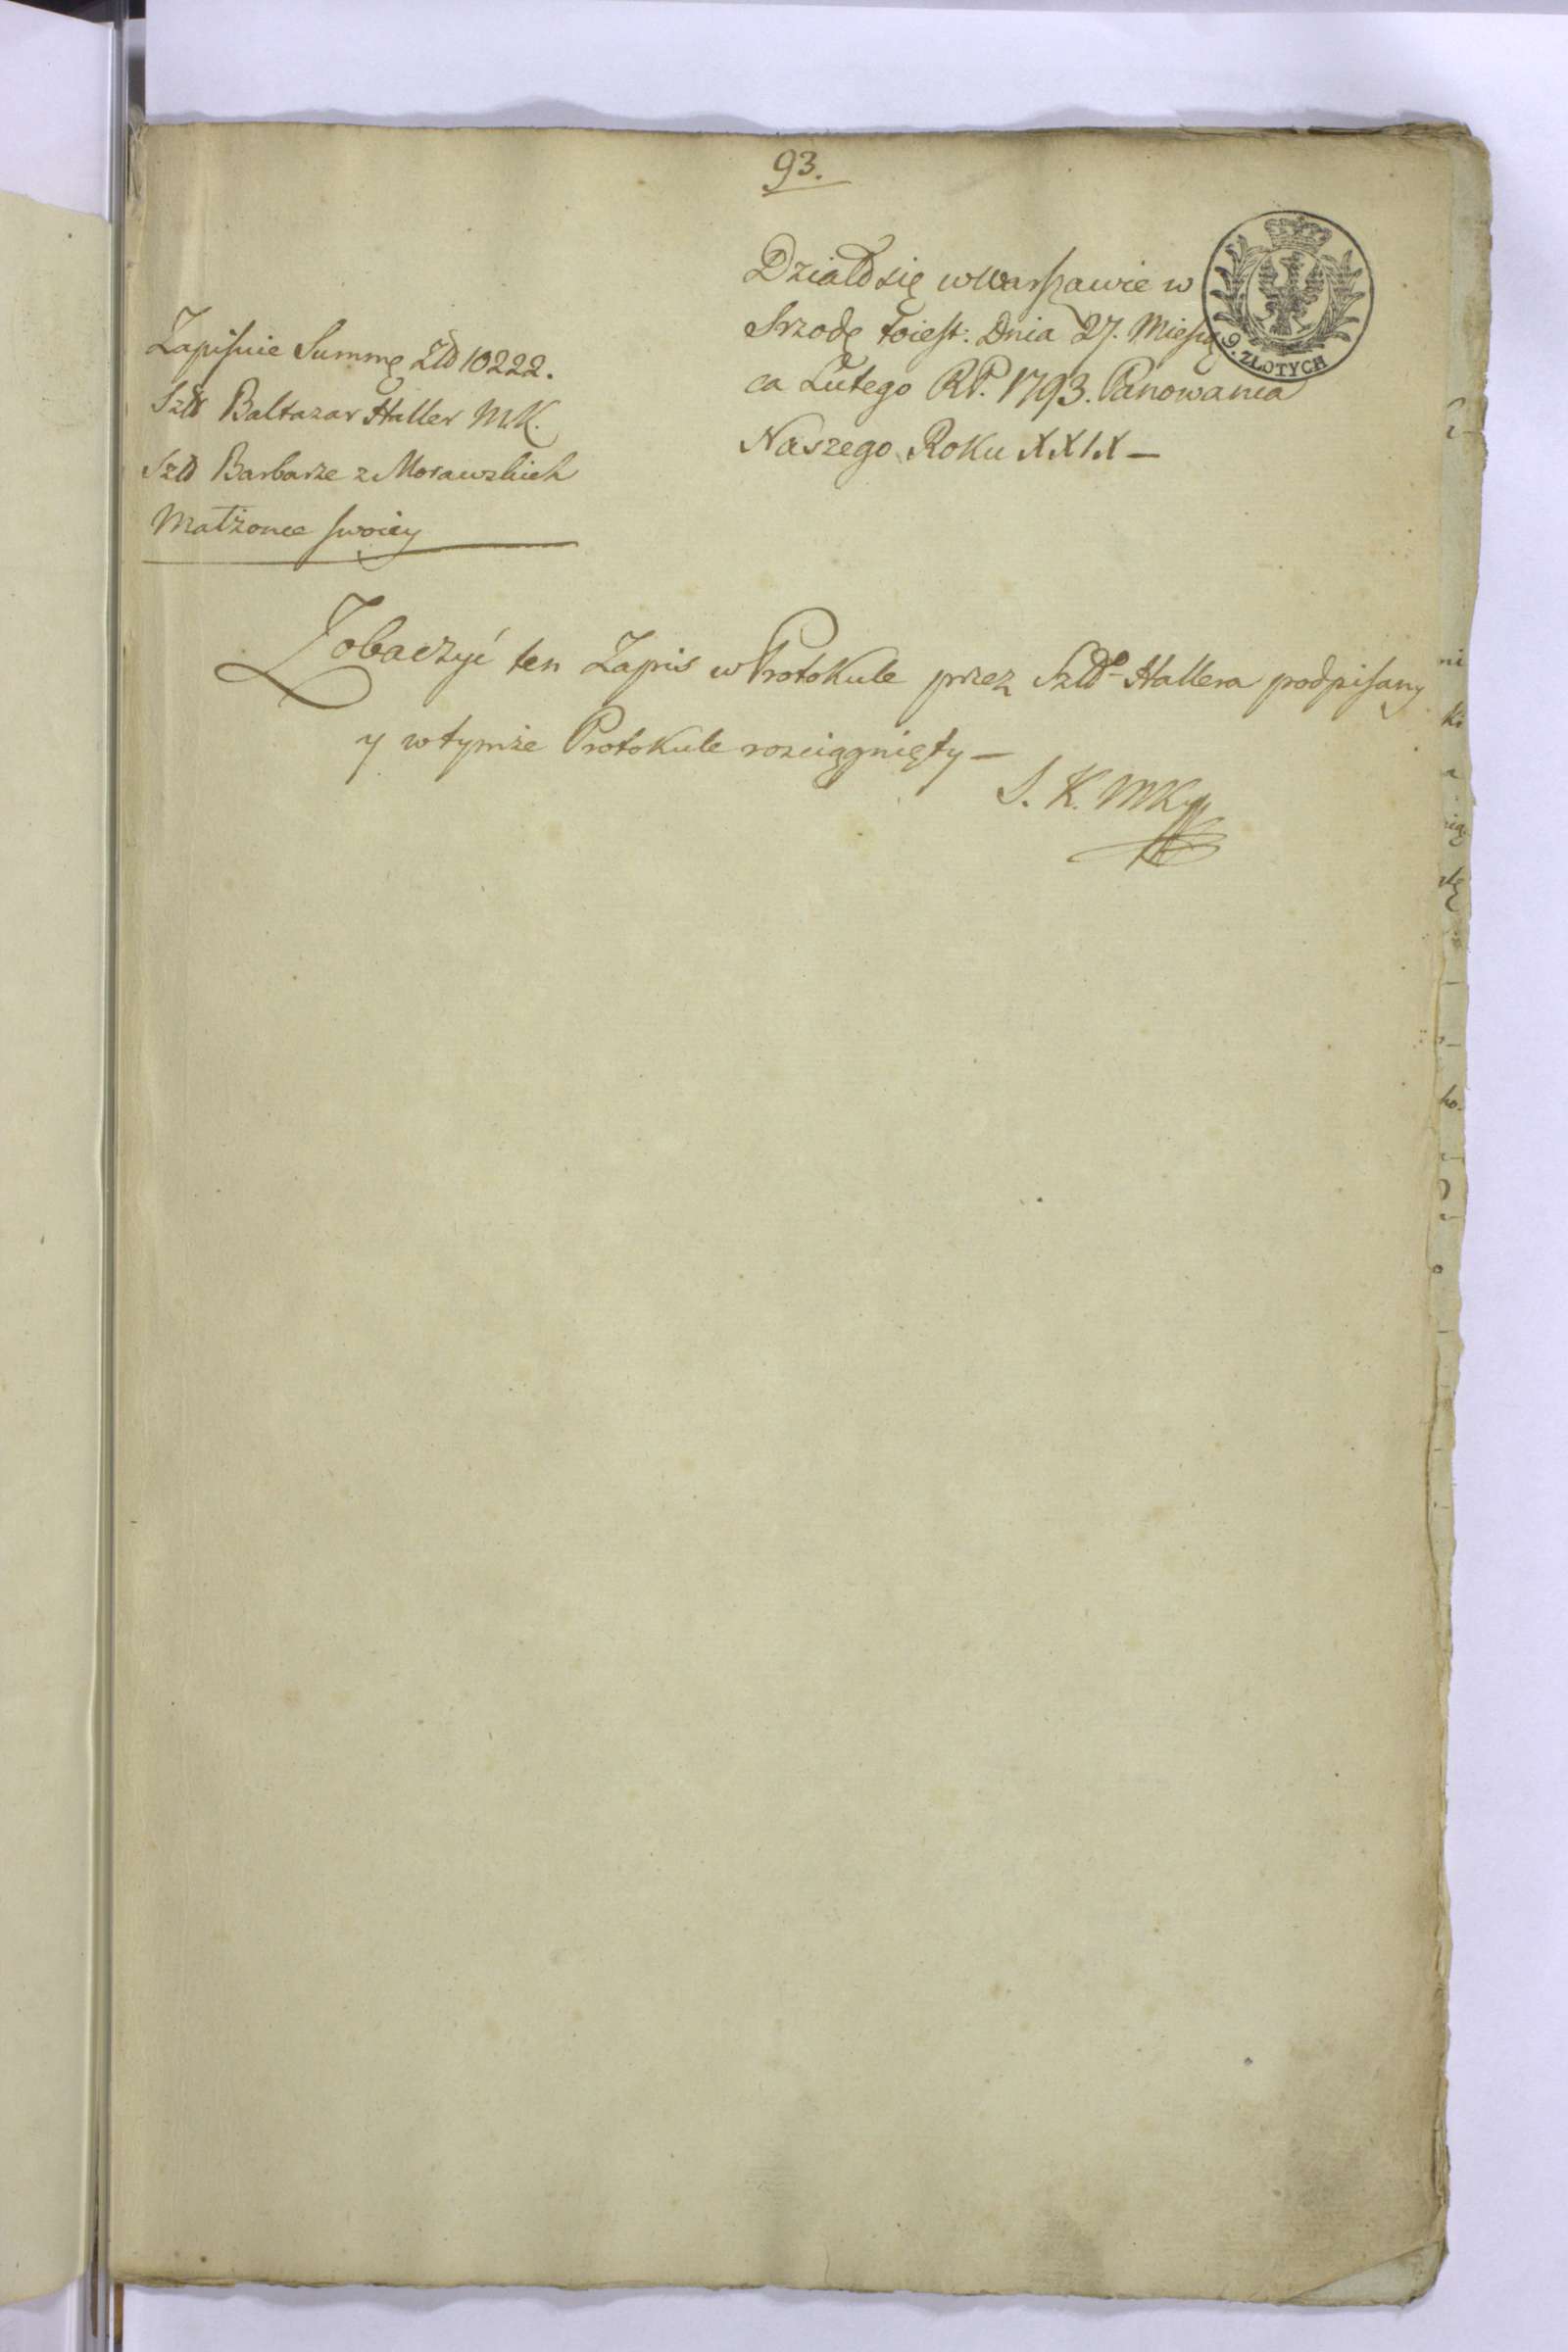 93.
Działo się w Warszawie w
Srzodę toiest: Dnia 27. Miesią
ca Lutego RP. 1793. Panowania
Naszego Roku XXIX —
9. ZŁOTYCH
Zapisuie Summę Zło 10222.
Szły Baltazar Haller M.K.
Barbarze z Morawskich
Małżonce swoiey
Zobaczyć ten Zapis w Protokule przez Szło Hallera podpisany
y w tymże Protokule rozciągnięty —